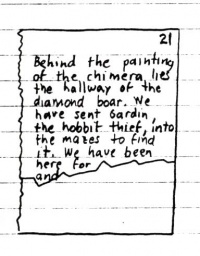 21
Behind the painting
of the chimera lies
the hallway of the
diamond boar. We
have sent Gardin,
the hobbit thief, into
the mazes to find
it. We have been
here for
and